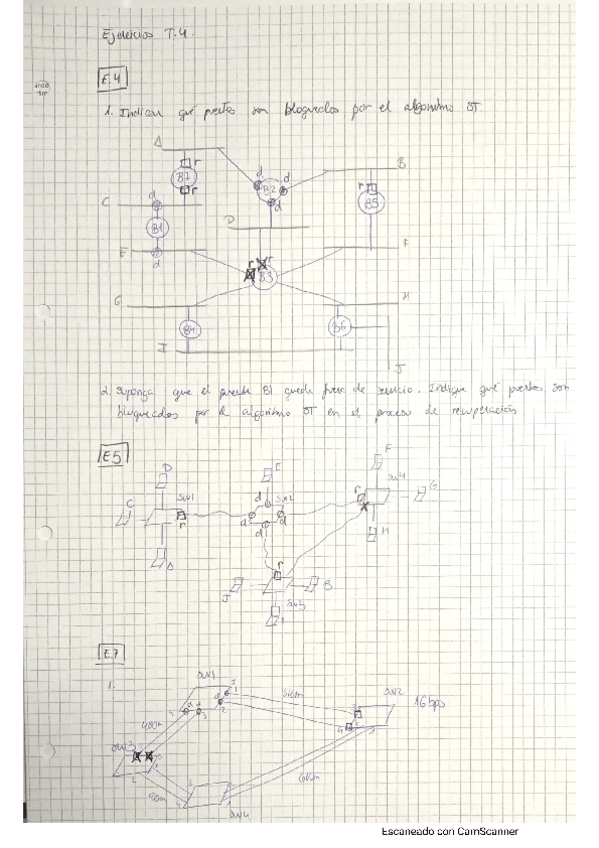 Ejercicios T.4.
E.4
1. Indican qué puertos son bloqueados por el algoritmo ST
A
B7
r
r
d
d
B2
d
B
r
B5
C
d
B1
d
E
D
r
r
B3
F
G
B4
H
B6
I
J
2. Suponga que el puente B1 quede fuera de servicio. Indique qué puertos son
bloqueados por el algoritmo ST en el proceso de recuperación
E5
D
C
SW1
r
A
E
d
SW2
d
d
d
F
SW4
r
G
H
r
J
B
SW3
I
E.7
1.
SW1
SW2
1Gbps
SW3
SW4
Escaneado con CamScanner